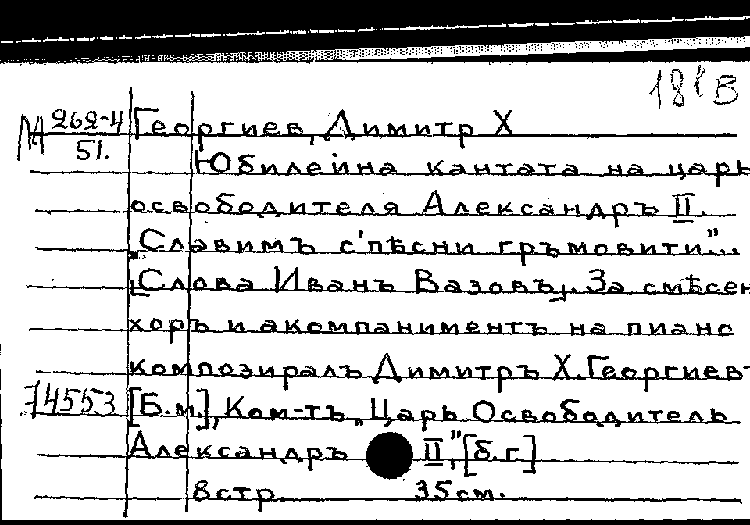 181 В
М 262-4 Георгиев, Димитр Х
51.
Юбилейна кантата на царь
освободителя Александръ II.
„Славимъ с'пѣсни гръмовити"...
[Слова Иванъ Вазовъ]. За смѣсен
хоръ и акомпанименть на пиано
композиралъ Димитръ Х. Георгиевъ
74553 [Б.м.], Ком-тъ „Царь Освободитель
Александръ II", [б.г.]
8 стр. 35 см.